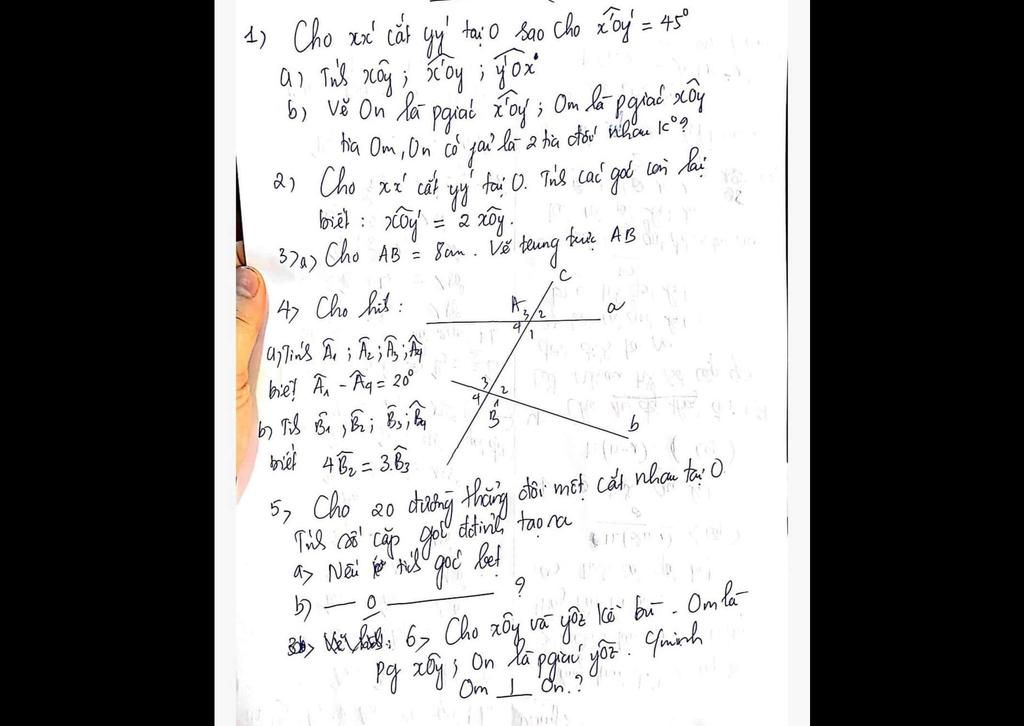 1) Cho xx' cắt yy' tại O sao cho x'Oy' = 45°
a) Tính xOy ; x'Oy ; y'Ox
b) Vẽ On là pgiác x'Oy' ; Om là pgiác xOy
tia Om, On có phải là 2 tia đối nhau k°?
2) Cho xx' cắt yy' tại O. Tính các góc còn lại
biết : xOy' = 2 xOy.
3) a) Cho AB = 8cm. Vẽ trung trực AB
4) Cho hình :
a) Tính A1 ; A2 ; A3 ; A4
biết A1 - A4 = 20°
b) Tính B1 ; B2 ; B3 ; B4
biết 4B2 = 3.B3
A 3 2 4 1 c a
3 2 4 1 B b
5) Cho 20 đường thẳng đôi một cắt nhau tại O
Tính số cặp góc đđỉnh tạo ra
a) Nếu tính góc bẹt
b) — O — ?
6) Cho xOy và yOz kề bù. Om là
pg xOy ; On là pgiác yOz. Cminh
Om ⊥ On.?